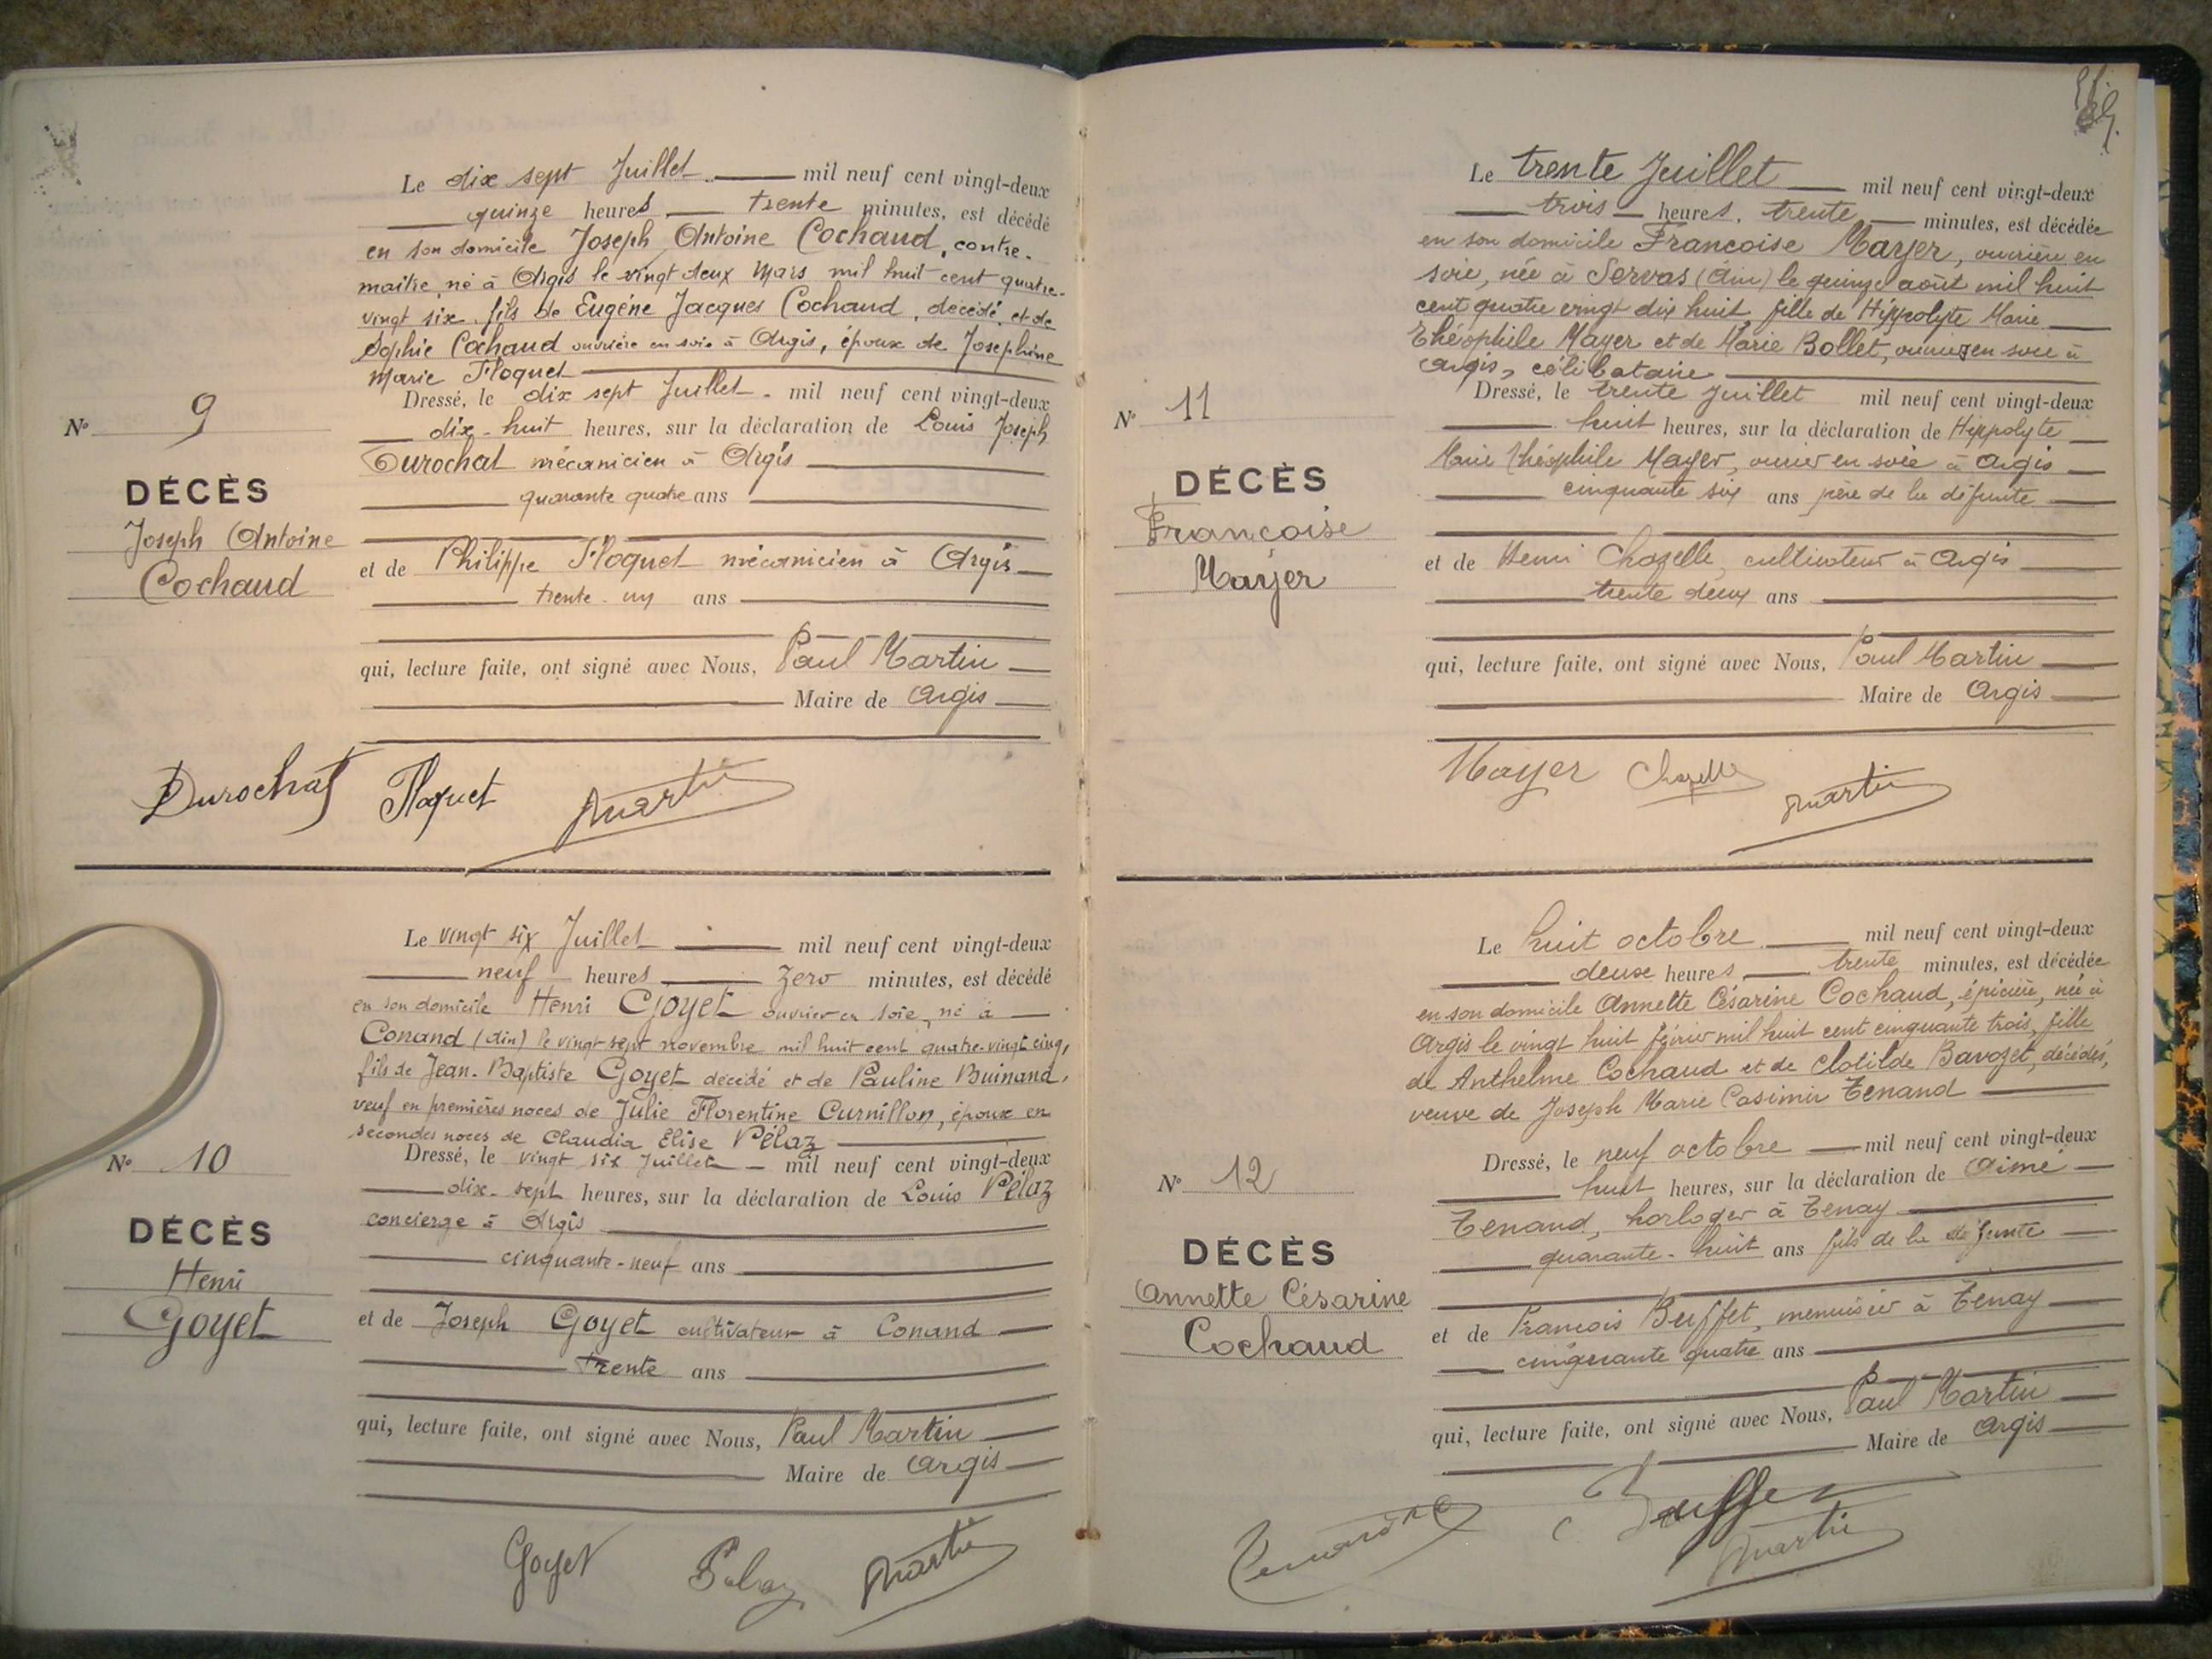 Le dix sept Juillet mil neuf cent vingt-deux
quinze heures trente minutes, est décédé
en son domicile Joseph Antoine Cochaud, contre-
maître, né à Argis le vingt deux Mars mil huit cent quatre-
vingt six, fils de Eugène Jacques Cochaud, décédé, et de
Sophie Cochaud ouvrière en soie à Argis, époux de Josephine
Marie Floquet
Dressé, le dix sept Juillet mil neuf cent vingt-deux
dix-huit heures, sur la déclaration de Louis Joseph
Durochat mécanicien à Argis
quarante quatre ans
et de Philippe Floquet mécanicien à Argis
trente-un ans
qui, lecture faite, ont signé avec Nous, Paul Martin
Maire de Argis
N° 9
DÉCÈS
Joseph Antoine
Cochaud
Durochat Floquet Martin
Le vingt six Juillet mil neuf cent vingt-deux
neuf heures zero minutes, est décédé
en son domicile Henri Goyet ouvrier en soie, né à
Conand (Ain) le vingt-sept novembre mil huit cent quatre-vingt cinq,
fils de Jean-Baptiste Goyet décédé et de Pauline Buinand,
veuf en premières noces de Julie Florentine Curnillon, époux en
secondes noces de Claudia Elise Pélaz
Dressé, le vingt six Juillet mil neuf cent vingt-deux
dix-sept heures, sur la déclaration de Louis Pélaz
concierge à Argis
cinquante-neuf ans
et de Joseph Goyet cultivateur à Conand
trente ans
qui, lecture faite, ont signé avec Nous, Paul Martin
Maire de Argis
N° 10
DÉCÈS
Henri
Goyet
Goyet Pelaz Martin
Le trente Juillet mil neuf cent vingt-deux
trois heures, trente minutes, est décédée
en son domicile Françoise Mayer, ouvrière en
soie, née à Servas (Ain) le quinze août mil huit
cent quatre vingt dix huit, fille de Hippolyte Marie
Théophile Mayer et de Marie Bollet, ouvriers en soie à
Argis, célibataire
Dressé, le trente Juillet mil neuf cent vingt-deux
huit heures, sur la déclaration de Hippolyte
Marie Théophile Mayer, ouvrier en soie à Argis
cinquante six ans père de la défunte
et de Henri Chazelle, cultivateur à Argis
trente deux ans
qui, lecture faite, ont signé avec Nous, Paul Martin
Maire de Argis
N° 11
DÉCÈS
Françoise
Mayer
Mayer Chazelle Martin
Le huit octobre mil neuf cent vingt-deux
deux heures trente minutes, est décédée
en son domicile Annette Césarine Cochaud, épicière, née à
Argis le vingt huit février mil huit cent cinquante trois, fille
de Anthelme Cochaud et de Clotilde Bavozet, décédés,
veuve de Joseph Marie Casimir Tenand
Dressé, le neuf octobre mil neuf cent vingt-deux
huit heures, sur la déclaration de Aimé
Tenand, horloger à Tenay
quarante-huit ans fils de la défunte
et de François Buffet, menuisier à Tenay
cinquante quatre ans
qui, lecture faite, ont signé avec Nous, Paul Martin
Maire de Argis
N° 12
DÉCÈS
Annette Césarine
Cochaud
Buffet
Martin